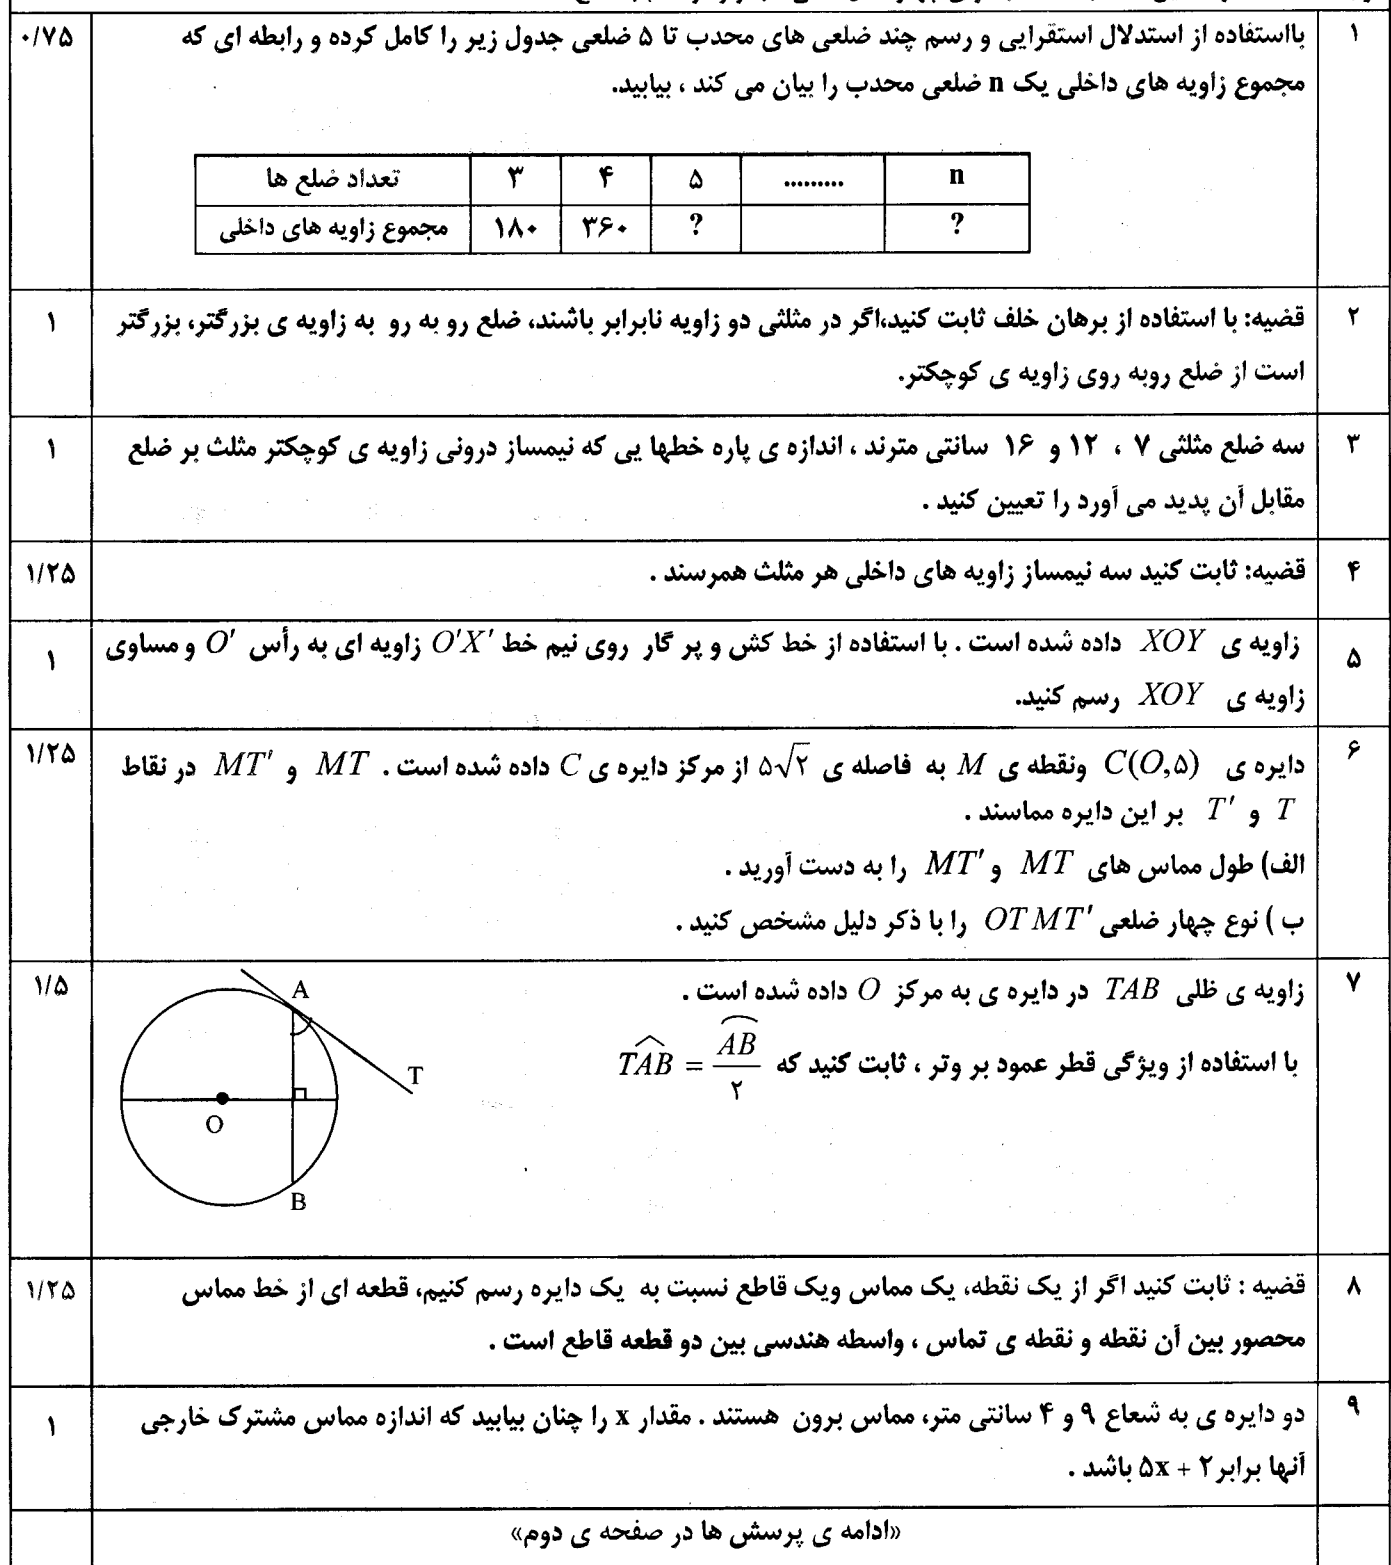 ۱ بااستفاده از استدلال استقرایی و رسم چند ضلعی های محدب تا ۵ ضلعی جدول زیر را کامل کرده و رابطه ای که ۰/۷۵
مجموع زاویه های داخلی یک n ضلعی محدب را بیان می کند ، بیابید.
تعداد ضلع ها ۳ ۴ ۵ ......... n
مجموع زاویه های داخلی ۱۸۰ ۳۶۰ ? ?
۲ قضیه: با استفاده از برهان خلف ثابت کنید،اگر در مثلثی دو زاویه نابرابر باشند، ضلع رو به رو به زاویه ی بزرگتر، بزرگتر ۱
است از ضلع روبه روی زاویه ی کوچکتر.
۳ سه ضلع مثلثی ۷ ، ۱۲ و ۱۶ سانتی مترند ، اندازه ی پاره خطها یی که نیمساز درونی زاویه ی کوچکتر مثلث بر ضلع ۱
مقابل آن پدید می آورد را تعیین کنید .
۴ قضیه: ثابت کنید سه نیمساز زاویه های داخلی هر مثلث همرسند . ۱/۲۵
۵ زاویه ی XOY داده شده است . با استفاده از خط کش و پر گار روی نیم خط O'X' زاویه ای به رأس O' و مساوی ۱
زاویه ی XOY رسم کنید.
۶ دایره ی C(O,۵) ونقطه ی M به فاصله ی ۵√۲ از مرکز دایره ی C داده شده است . MT و MT' در نقاط ۱/۲۵
T و T' بر این دایره مماسند .
الف) طول مماس های MT و MT' را به دست آورید .
ب ) نوع چهار ضلعی OTMT' را با ذکر دلیل مشخص کنید .
۷ زاویه ی ظلی TAB در دایره ی به مرکز O داده شده است . ۱/۵
با استفاده از ویژگی قطر عمود بر وتر ، ثابت کنید که TAB = AB/۲
A
T
O
B
۸ قضیه : ثابت کنید اگر از یک نقطه، یک مماس ویک قاطع نسبت به یک دایره رسم کنیم، قطعه ای از خط مماس ۱/۲۵
محصور بین آن نقطه و نقطه ی تماس ، واسطه هندسی بین دو قطعه قاطع است .
۹ دو دایره ی به شعاع ۹ و ۴ سانتی متر، مماس برون هستند . مقدار x را چنان بیابید که اندازه مماس مشترک خارجی ۱
آنها برابر ۵x + ۲ باشد .
«ادامه ی پرسش ها در صفحه ی دوم»